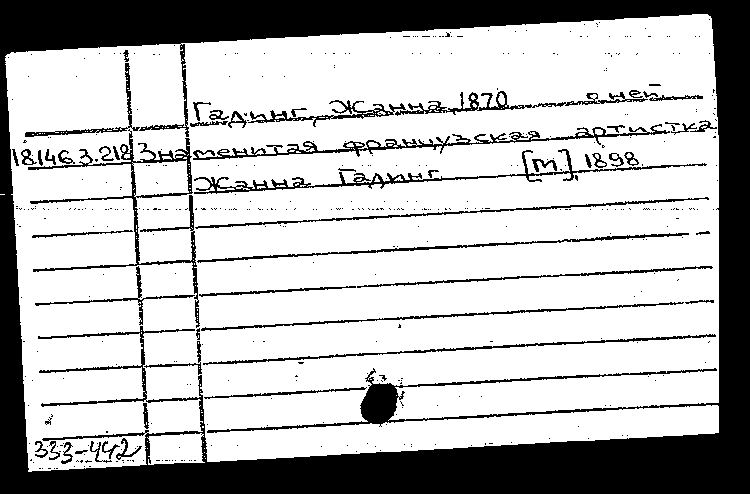 Гадинг, Жанна, 1870 о ней
18.146.3.218 Знаменитая французская артистка
Жанна Гадинг [М], 1898
333-442